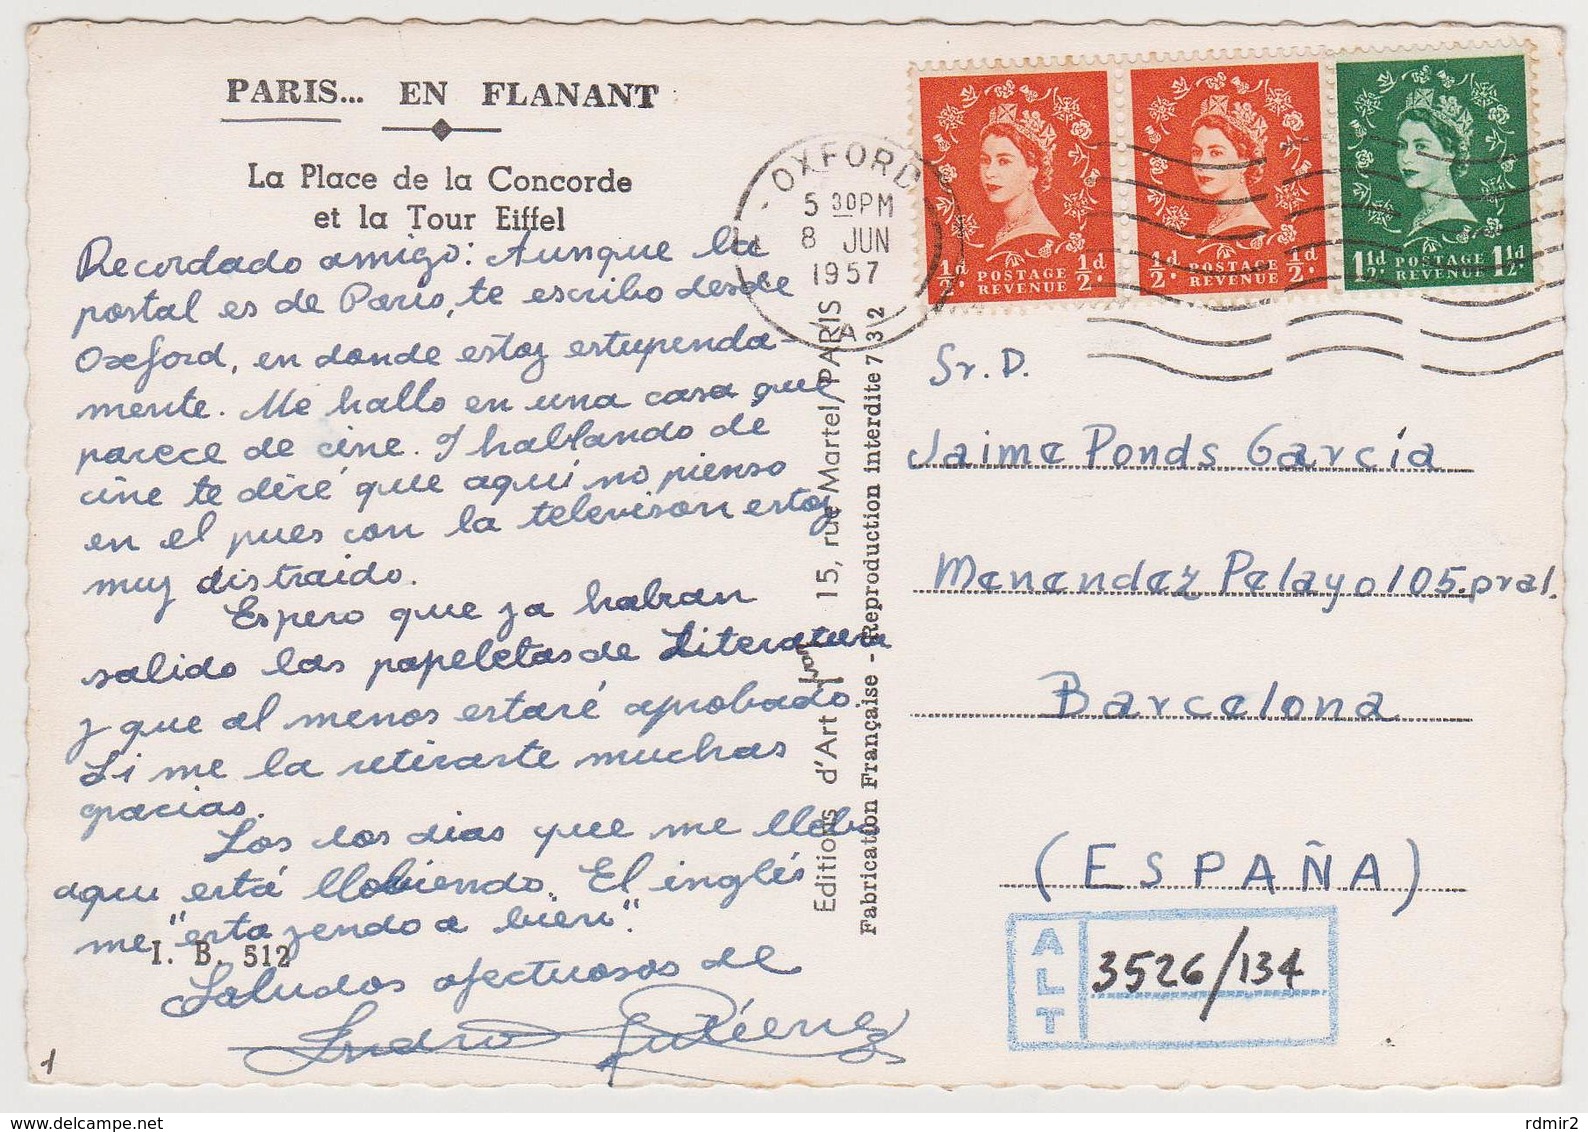 PARIS... EN FLANANT
La Place de la Concorde
et la Tour Eiffel
Recordado amigo: Aunque la
postal es de Paris, te escribo desde
Oxford, en donde estoy estupenda-
mente. Me hallo en una casa que
parece de cine. Y hablando de
cine te diré que aquí no pienso
en el pues con la television estoy
muy distraido.
Espero que ya habran
salido las papeletas de Literatura
y que al menos estaré aprobado.
Si me la retiraste muchas
gracias.
Los dias que me llebo
aqui está llobiendo. El inglés
me "esta yendo a bien".
I. B. 512
Saludos afectuosos de
Gutiérrez
1
Editions d'Art
15, rue Martel/PARIS
Fabrication Française - Reproduction interdite 732
OXFORD
5 30PM
8 JUN
1957
A
½d POSTAGE REVENUE ½d
½d POSTAGE REVENUE ½d
1½d POSTAGE REVENUE 1½d
Sr. D.
Jaime Ponds García
Menendez Pelayo 105. pral.
Barcelona
(ESPAÑA)
ALT
3526/134
www.delcampe.net
rdmir2